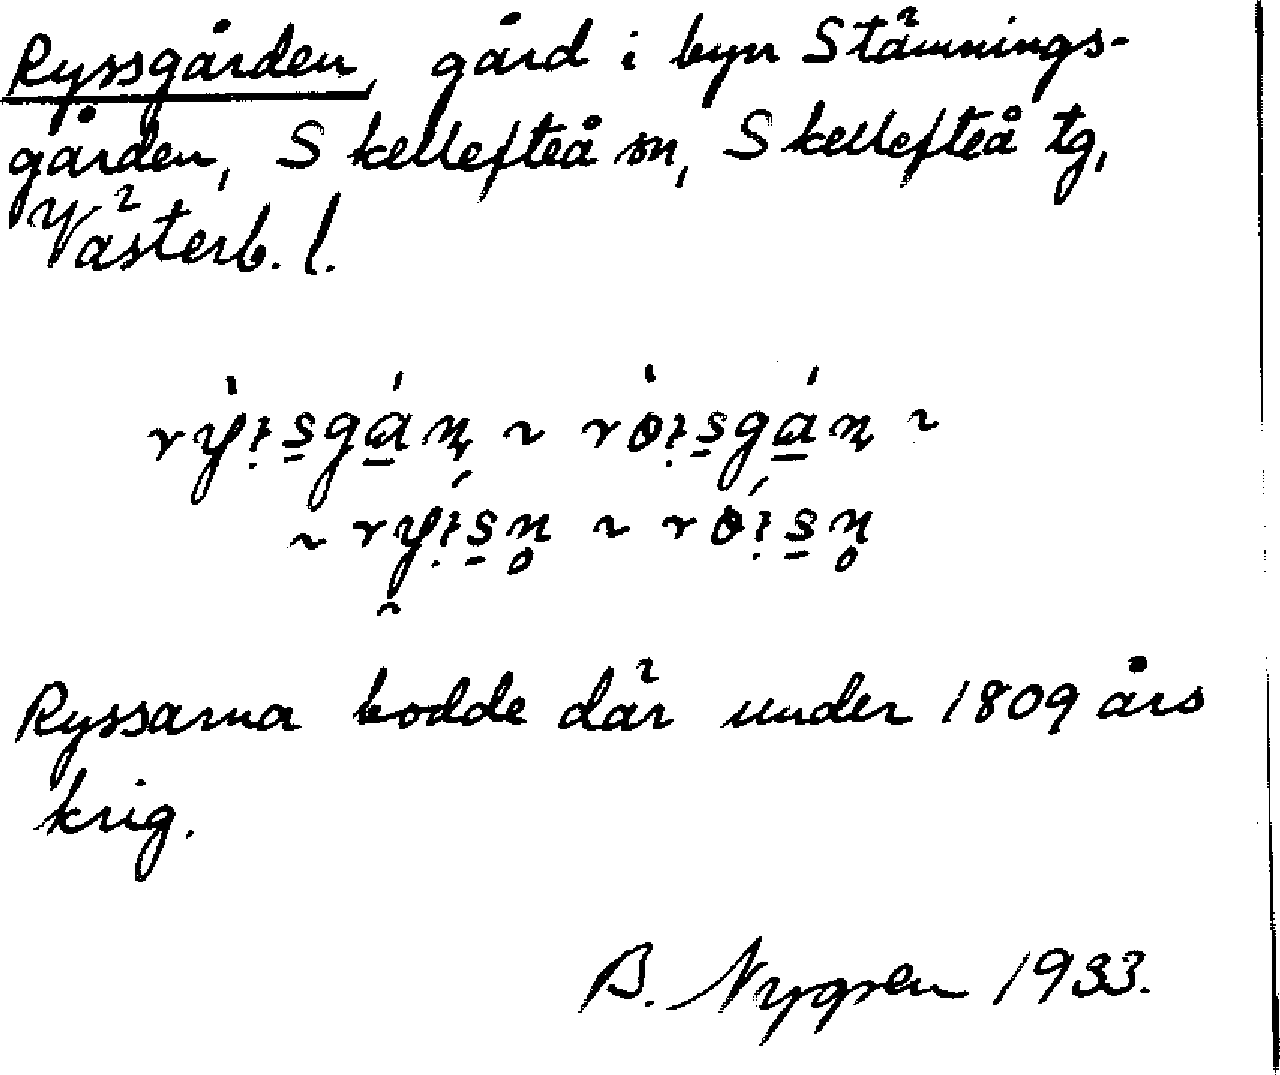 Ryssgården, gård i byn Stämnings-
gården, Skellefteå sn, Skellefteå tg,
Västerb. l.
Ryssarna bodde där under 1809 års
krig.
B. Nygren 1933.